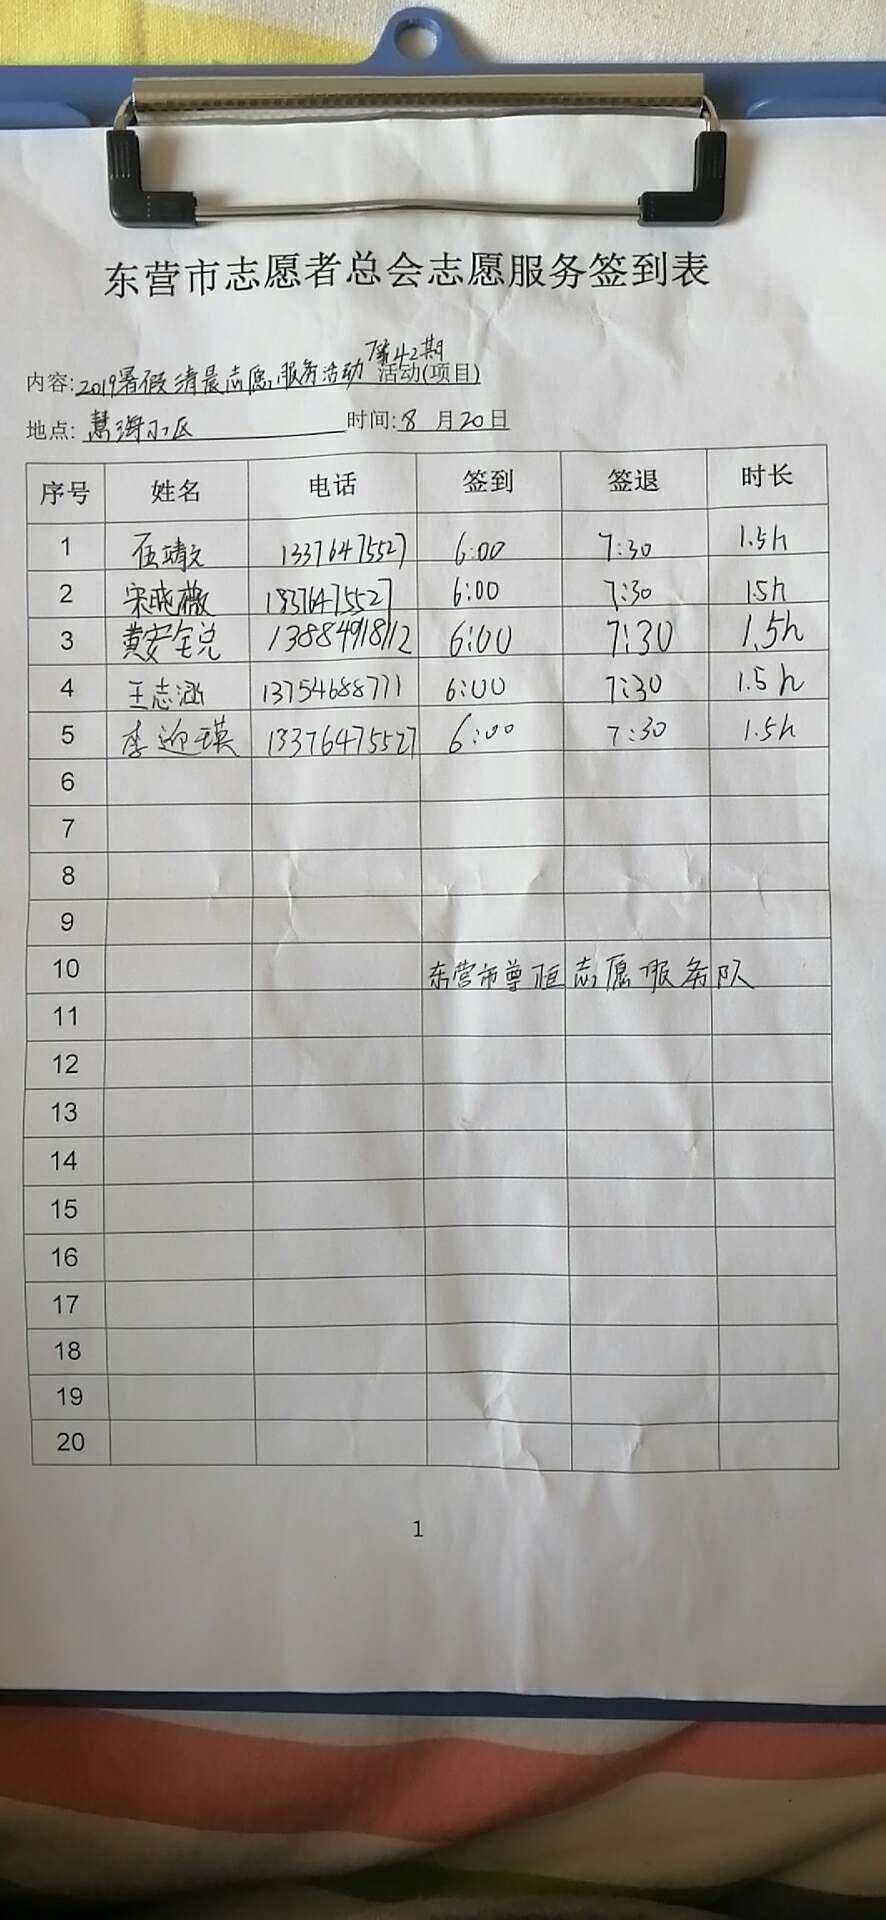 东营市志愿者总会志愿服务签到表
第42期
内容:2019暑假清晨志愿服务活动 活动(项目)
地点: 慧海小区 时间:8 月20日
序号 姓名 电话 签到 签退 时长
1 伍靖文 13376475527 6:00 7:30 1.5h
2 宋晓薇 18376475527 6:00 7:30 1.5h
3 黄安锐 13884918112 6:00 7:30 1.5h
4 王志涵 13754688771 6:00 7:30 1.5h
5 李迎瑛 13376475527 6:00 7:30 1.5h
6
7
8
9
10 东营市尊恒志愿服务队
11
12
13
14
15
16
17
18
19
20
1